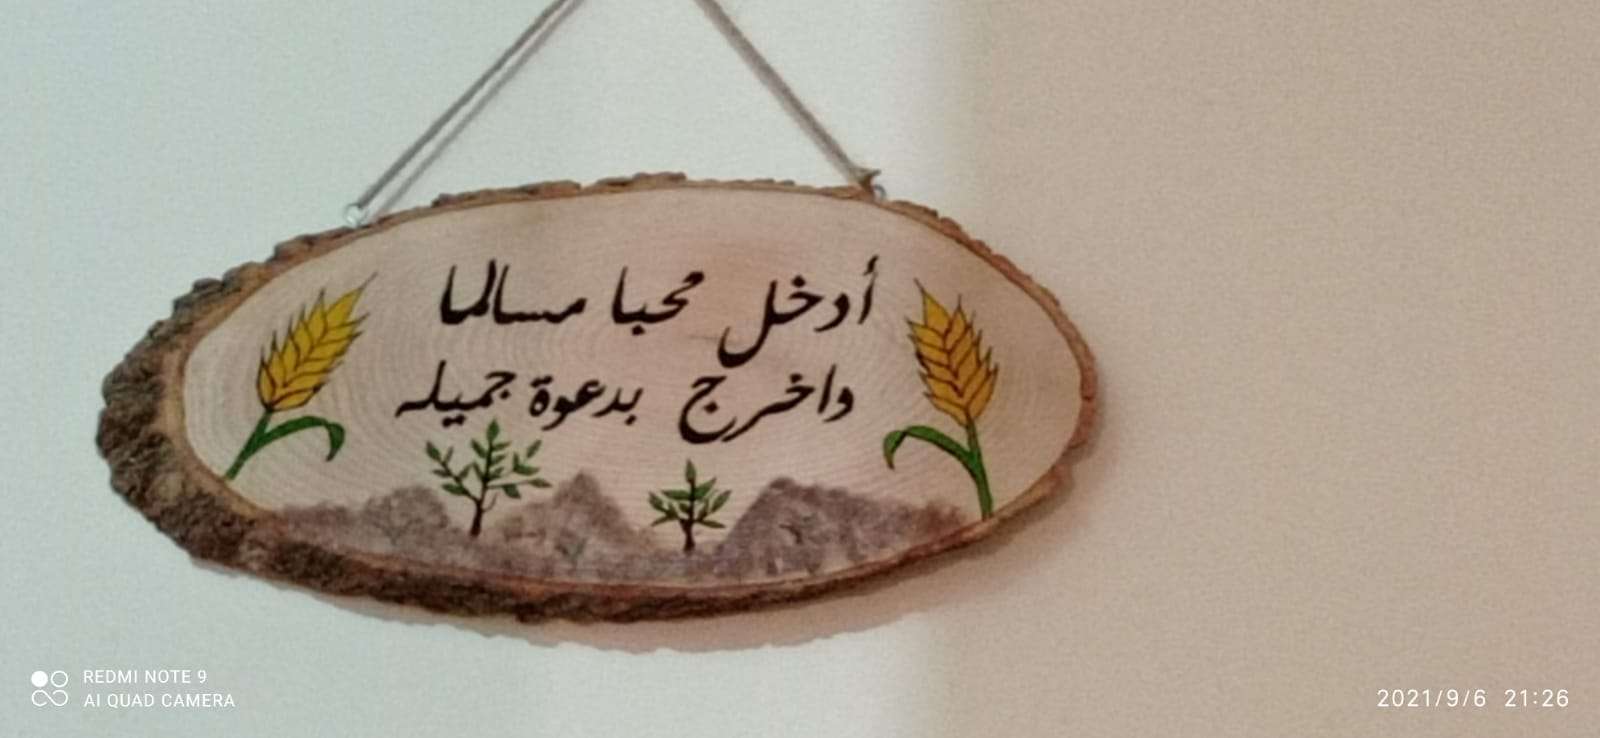 أدخل محبا مسالما
واخرج بدعوة جميله
REDMI NOTE 9
AI QUAD CAMERA
2021/9/6 21:26